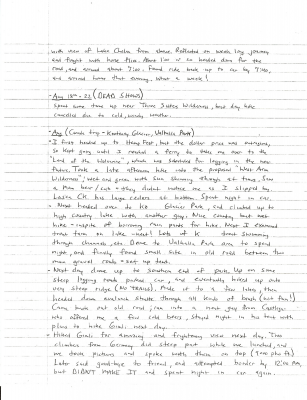 with view of Lake Chelan from above. Reflected on weeks long journey
and fight with horse flies. About 1:00 we headed down for the
road, and around about 3:00. Found ride back up to car by 9:00,
and arrived home that evening. What a week!
- Aug 18th - 23 (DEAD SHOWS)
Spent some time up near Three Sisters Wilderness, but day hike
cancelled due to cold, windy weather.
- Aug (Canada trip - Kootenay Glacier, Valhalla Park)
I first headed up to Hemp Fest, but the dollar price was everywhere,
So kept going until I reached a ferry, to take me over to the
"Land of the Unknown", which was scheduled for logging in the near
future. Took a late afternoon hike into the proposed West Arm
Wilderness; wet and green with sun shining through at times, Saw
a Mom bear / cub + they didn't notice me as I slipped by.
Lasca Ck has large cedars at bottom. Spent night in car.
- Next headed over to K Glacier Park, and climbed up to
high country lake with another guy. Nice country but wet
hike - inspite of borrowing rain pants for hike. Most I examined
track from on lake - neat! with K trout swimming
through channels, etc. Drove to Valhalla Park area to spend
night, and finally found small site in old road between two
main arterial roads - set up tent.
- Next day drove up to southern end of park. Up on some
steep logging roads parked car, and eventually hiked up onto
very steep ridge (NO TRAIL). Rode it to a few lakes, then
headed down avalanche shute through all kinds of brush (but fun!)
Came back out old road; ran into a neat guy from Castlegar
who offered me a few cold beers, stayed night in his tent with
plans to hike Gimli next day.
- Hiked Gimli for amazing and frightening view next day. Two
climbers from Germany did steep part while we hunched, and
we took pictures and spoke with them on top (your photo).
Later said goodbye to friend, and attempted border by 12:00 AM,
but DIDN'T MAKE IT and spent night in car again.